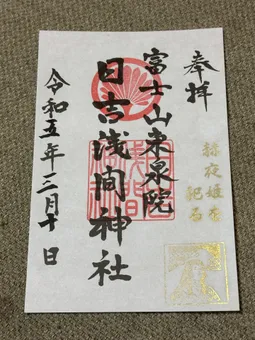 奉拝
富士山東泉院
日吉浅間神社
令和五年三月十日